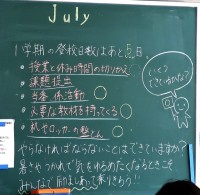 July
1学期の登校日数はあと5日。
・授業と休み時間の切りかえ
・課題提出
・当番・係活動
・必要な教材を持ってくる
・机やロッカーの整とん
いくつ
できているかな?
やらなければならないことはできていますか?
暑さやつかれで気をゆるめたくなるときこそ
みんなで